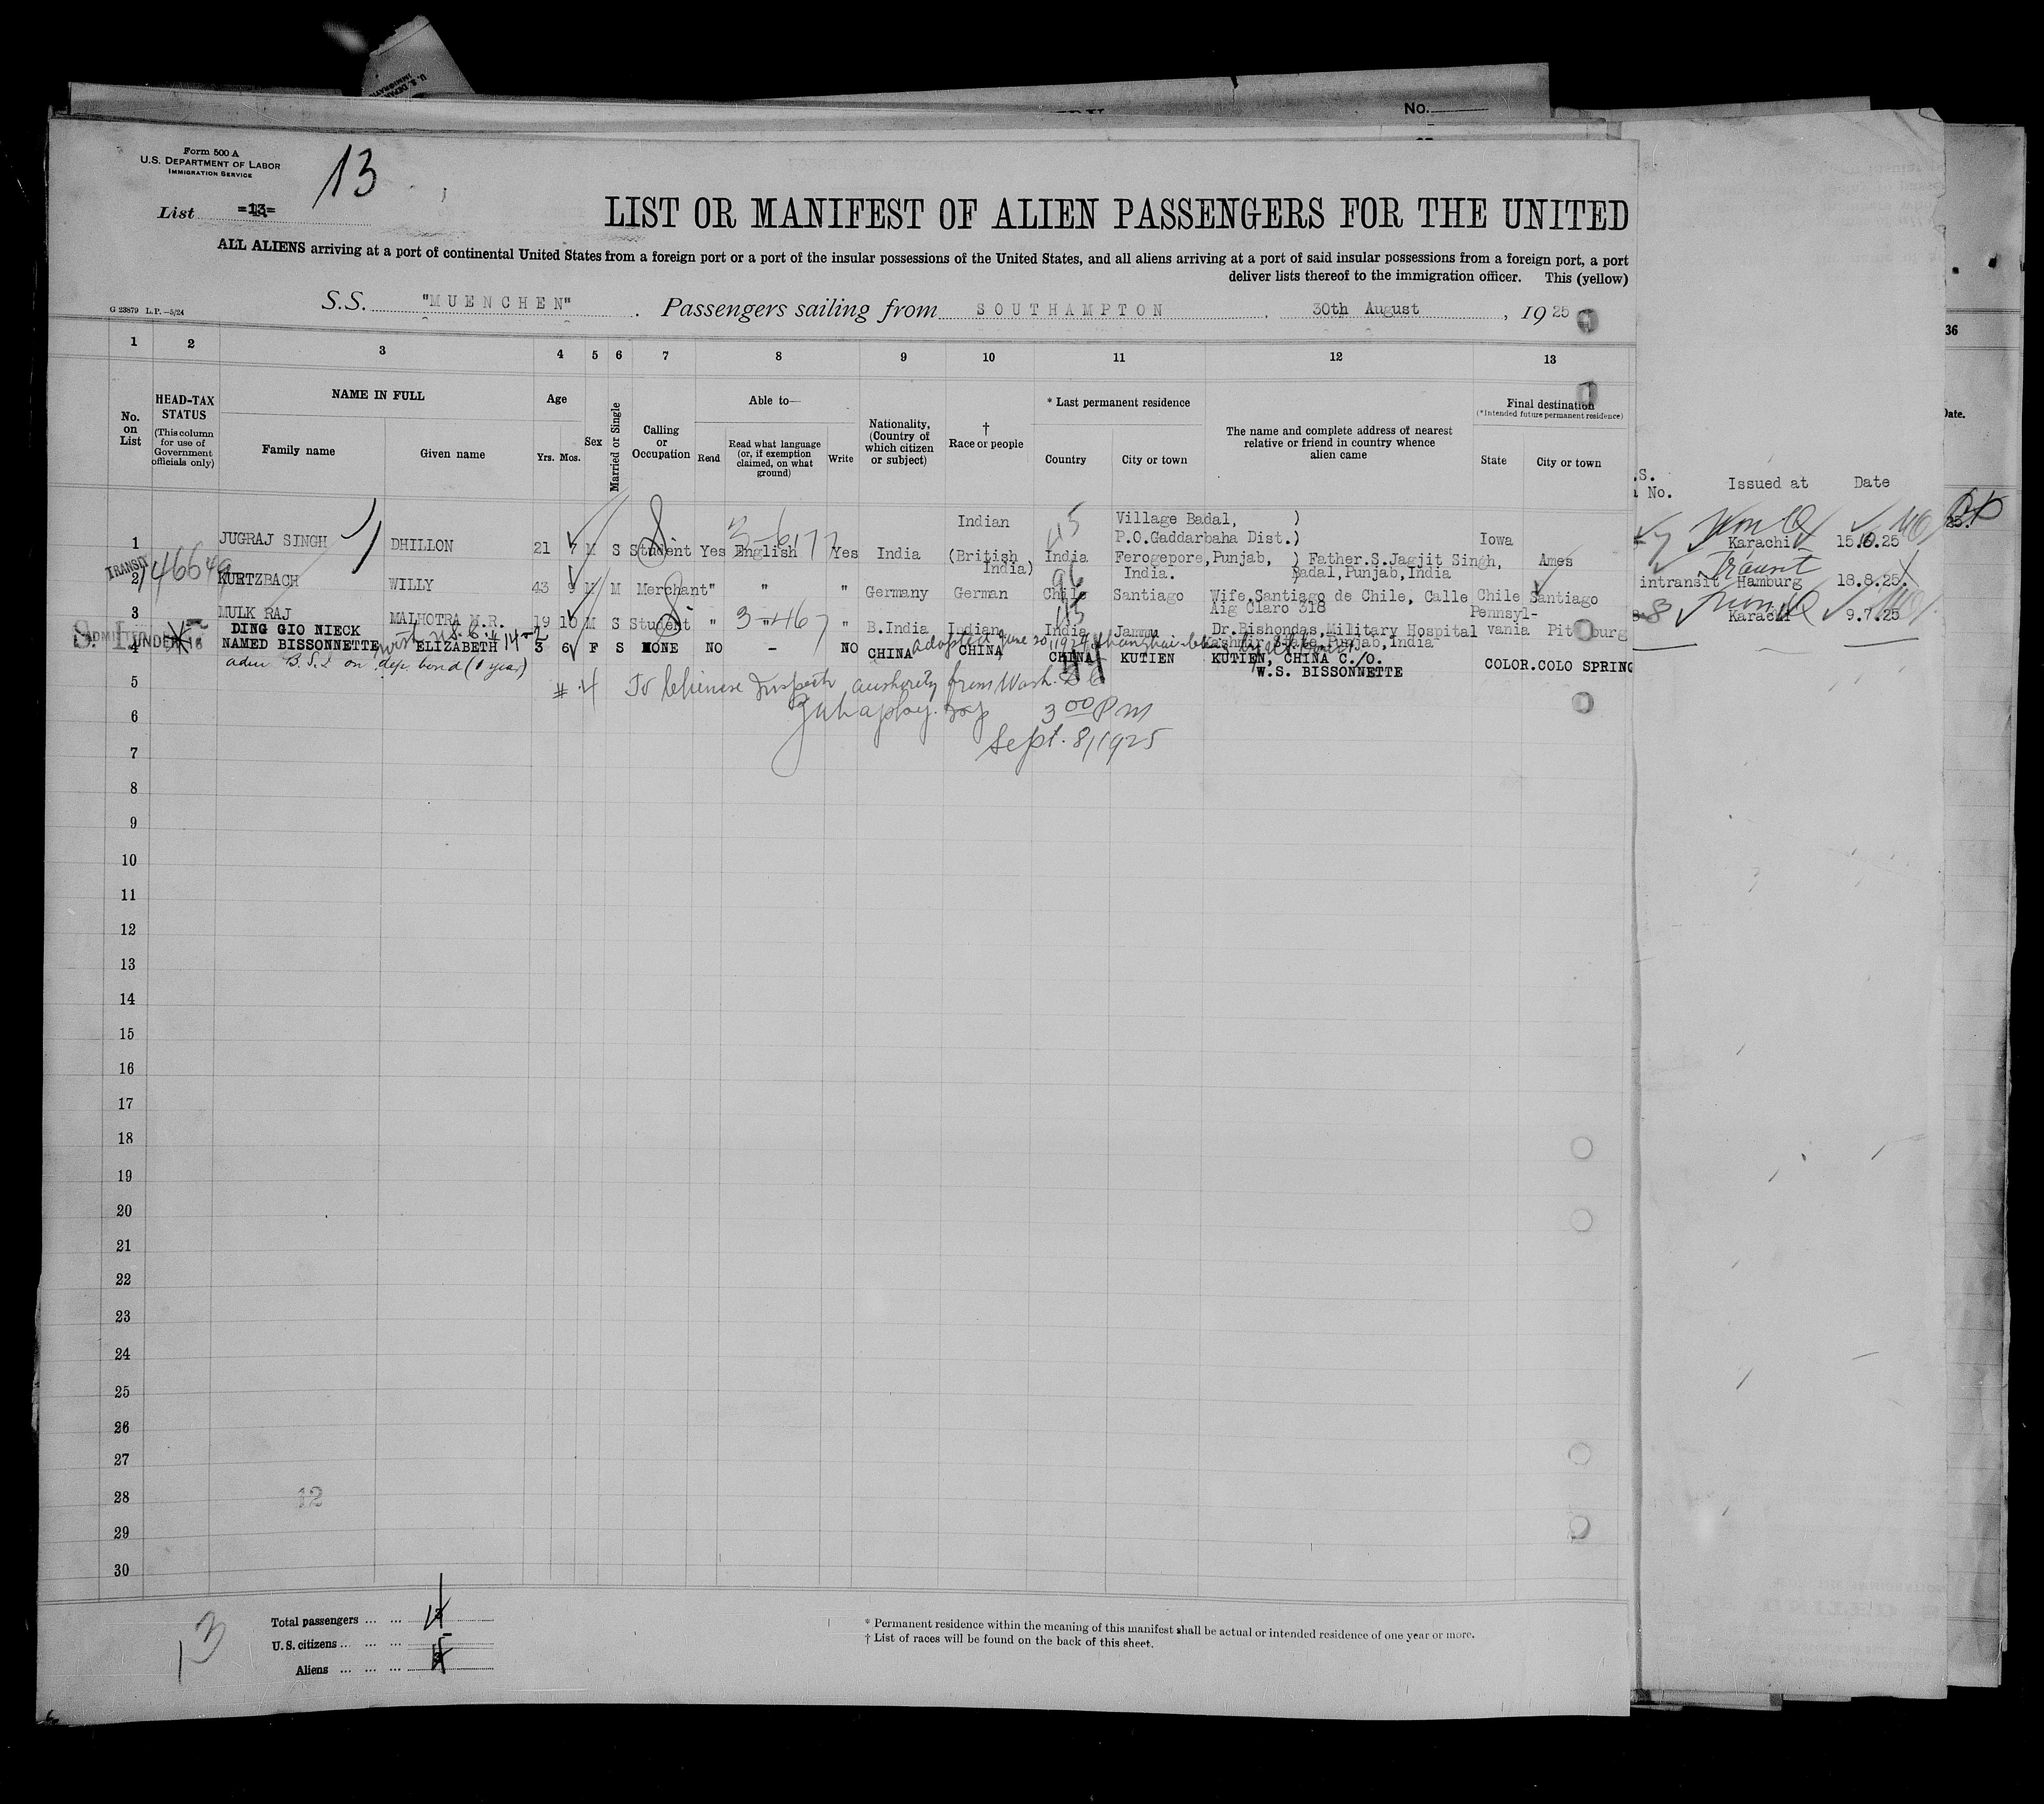 No.
Form 500 A
U.S. DEPARTMENT OF LABOR
IMMIGRATION SERVICE
13
List =13=
LIST OR MANIFEST OF ALIEN PASSENGERS FOR THE UNITED
ALL ALIENS arriving at a port of continental United States from a foreign port or a port of the insular possessions of the United States, and all aliens arriving at a port of said insular possessions from a foreign port, a port
deliver lists thereof to the immigration officer. This (yellow)
G 23879 L.P.—5/24
S.S. "MUENCHEN". Passengers sailing from SOUTHAMPTON, 30th August, 1925
1 2 3 4 5 6 7 8 9 10 11 12 13
36
No. on List
HEAD-TAX STATUS
(This column for use of Government officials only)
NAME IN FULL
Family name
Given name
Age
Yrs. Mos.
Sex
Married or Single
Calling or Occupation
Able to—
Read
Read what language (or, if exemption claimed, on what ground)
Write
Nationality, (Country of which citizen or subject)
† Race or people
* Last permanent residence
Country
City or town
The name and complete address of nearest relative or friend in country whence alien came
Final destination
(*Intended future permanent residence)
State
City or town
Date.
.S.
No. Issued at Date
1 JUGRAJ SINGH DHILLON 21 7 M S Student Yes English Yes India Indian (British India) India Village Badal, ) P.O.Gaddarbaha Dist.) Ferogepore,Punjab, ) India. Father.S.Jagjit Singh, Badal,Punjab,India Iowa Ames
3-617
45
Karachi 15.10.25
TRANSIT
46649
2 KURTZBACH WILLY 43 9 M M Merchant " " " Germany German Chile Santiago Wife,Santiago de Chile, Calle Aig Claro 318 Chile Santiago
96
Transit
intransit Hamburg 18.8.25
3 MULK RAJ MALHOTRA M.R. 19 10 M S Student " " " B.India Indian India Jammu Dr.Bishondas,Military Hospital Kashmir State,Punjab,India Pennsyl-vania Pit burg
3-467
45
Karachi 9.7.25
S. I.
ADMITTED
UNDER 16
4 DING GIO NIECK NAMED BISSONNETTE ELIZABETH 3 6 F S NONE NO - NO CHINA CHINA CHINA KUTIEN KUTIEN, CHINA C./O. W.S. BISSONNETTE COLOR.COLO SPRING
with U.S.C. # 14-2
adopted June 20, 1924 Shanghai
44
adm B.S.I. on dep. bond (1 year)
5
# 4 To Chinese Inspector authority from Wash. D C
6
3 00 P m
7
Sept. 8, 1925
8
9
10
11
12
13
14
15
16
17
18
19
20
21
22
23
24
25
26
27
28
12
29
30
13
Total passengers ... ...
U. S. citizens ... ... ...
Aliens ... ... ...
* Permanent residence within the meaning of this manifest shall be actual or intended residence of one year or more.
† List of races will be found on the back of this sheet.